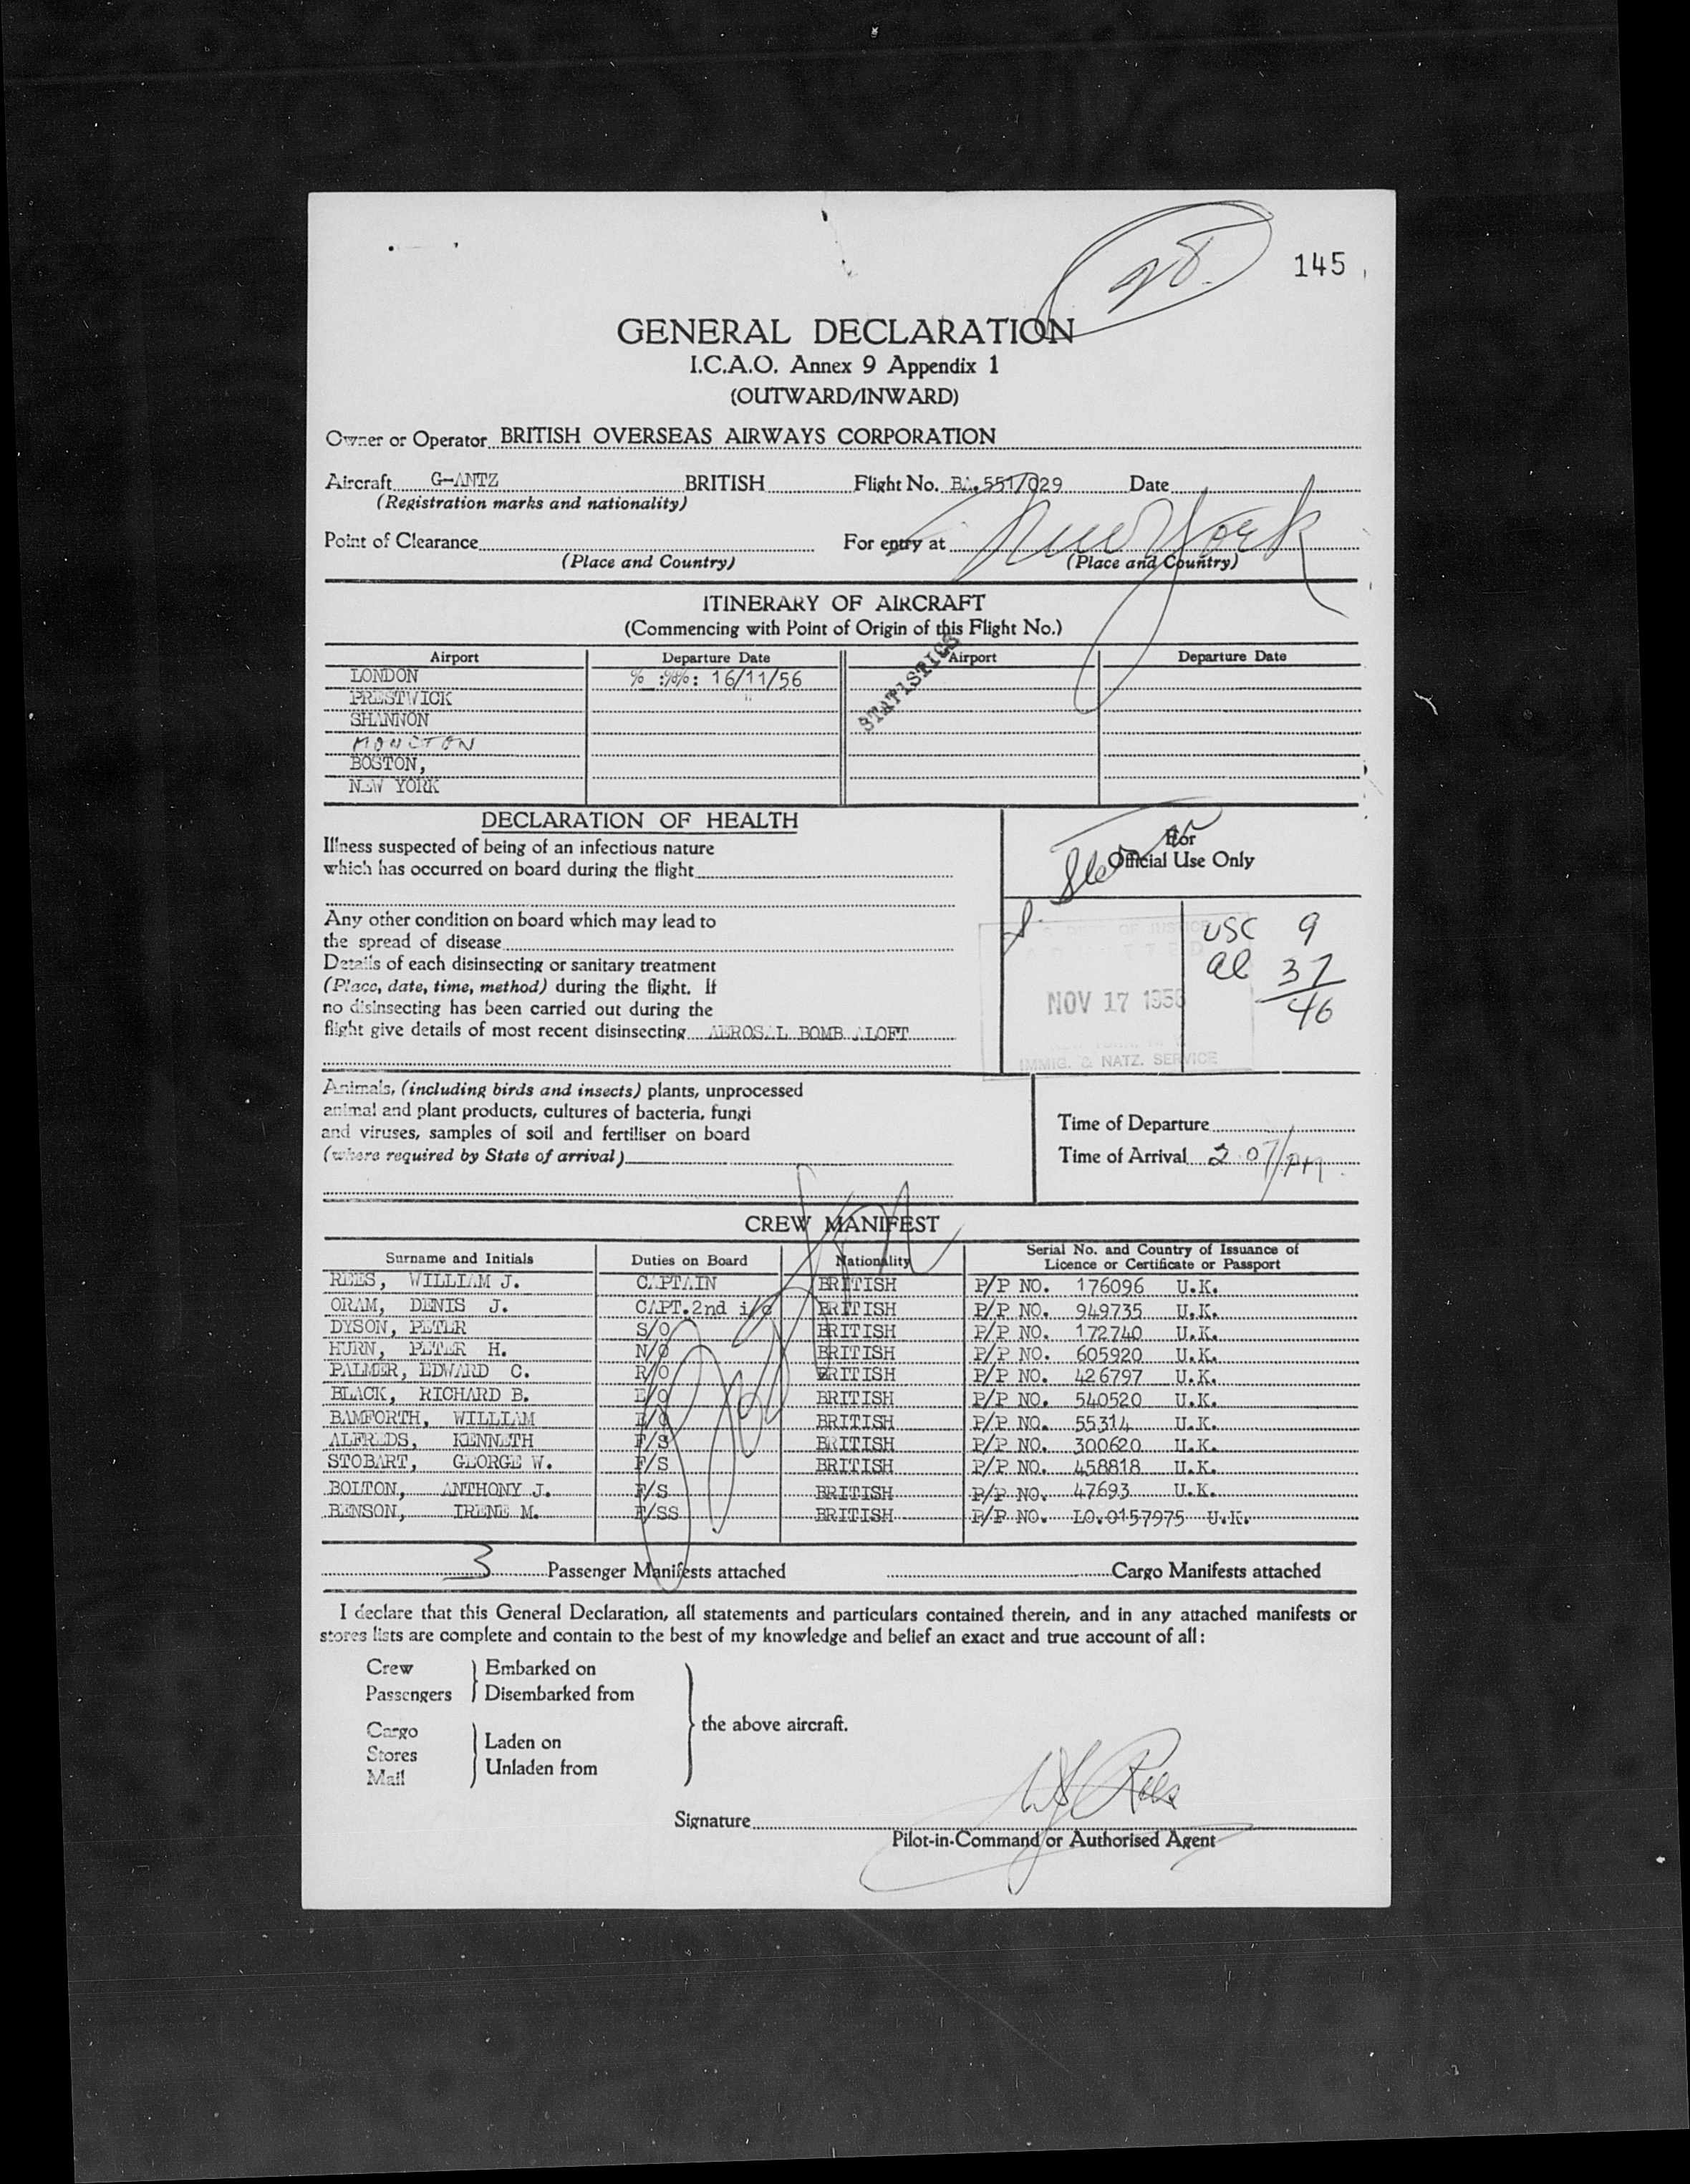 28.
145
GENERAL DECLARATION
I.C.A.O. Annex 9 Appendix 1
(OUTWARD/INWARD)
Owner or Operator BRITISH OVERSEAS AIRWAYS CORPORATION
Aircraft G-ANTZ BRITISH Flight No. BA.551/029 Date
(Registration marks and nationality)
Point of Clearance For entry at New York
(Place and Country) (Place and Country)
ITINERARY OF AIRCRAFT
(Commencing with Point of Origin of this Flight No.)
STATISTICS
Airport Departure Date Airport Departure Date
LONDON 16/11/56
PRESTWICK
SHANNON
MONCTON
BOSTON,
NEW YORK
DECLARATION OF HEALTH
For
Official Use Only
Illness suspected of being of an infectious nature
which has occurred on board during the flight
Any other condition on board which may lead to
the spread of disease
Details of each disinsecting or sanitary treatment
(Place, date, time, method) during the flight. If
no disinsecting has been carried out during the
flight give details of most recent disinsecting AEROSAL BOMB ALOFT
OF JUSTICE
NOV 17 1956
IMMIG. & NATZ. SERVICE
USC 9
al 37
46
Animals, (including birds and insects) plants, unprocessed
animal and plant products, cultures of bacteria, fungi
and viruses, samples of soil and fertiliser on board
(where required by State of arrival)
Time of Departure
Time of Arrival 2 07/PM
CREW MANIFEST
Surname and Initials Duties on Board Nationality Serial No. and Country of Issuance of Licence or Certificate or Passport
REES, WILLIAM J. CAPTAIN BRITISH P/P NO. 176096 U.K.
ORAM, DENIS J. CAPT.2nd i/c BRITISH P/P NO. 949735 U.K.
DYSON, PETER S/O BRITISH P/P NO. 172740 U.K.
HURN, PETER H. N/O BRITISH P/P NO. 605920 U.K.
PALMER, EDWARD C. R/O BRITISH P/P NO. 426797 U.K.
BLACK, RICHARD B. E/O BRITISH P/P NO. 540520 U.K.
BAMFORTH, WILLIAM E/O BRITISH P/P NO. 55314 U.K.
ALFREDS, KENNETH F/S BRITISH P/P NO. 300620 U.K.
STOBART, GEORGE W. F/S BRITISH P/P NO. 458818 U.K.
BOLTON, ANTHONY J. F/S BRITISH P/P NO. 47693 U.K.
BENSON, IRENE M. F/SS BRITISH P/P NO. LO.0157975 U.K.
3 Passenger Manifests attached Cargo Manifests attached
I declare that this General Declaration, all statements and particulars contained therein, and in any attached manifests or
stores lists are complete and contain to the best of my knowledge and belief an exact and true account of all:
Crew Embarked on
Passengers Disembarked from
the above aircraft.
Cargo
Stores Laden on
Mail Unladen from
Signature WJ Rees
Pilot-in-Command or Authorised Agent